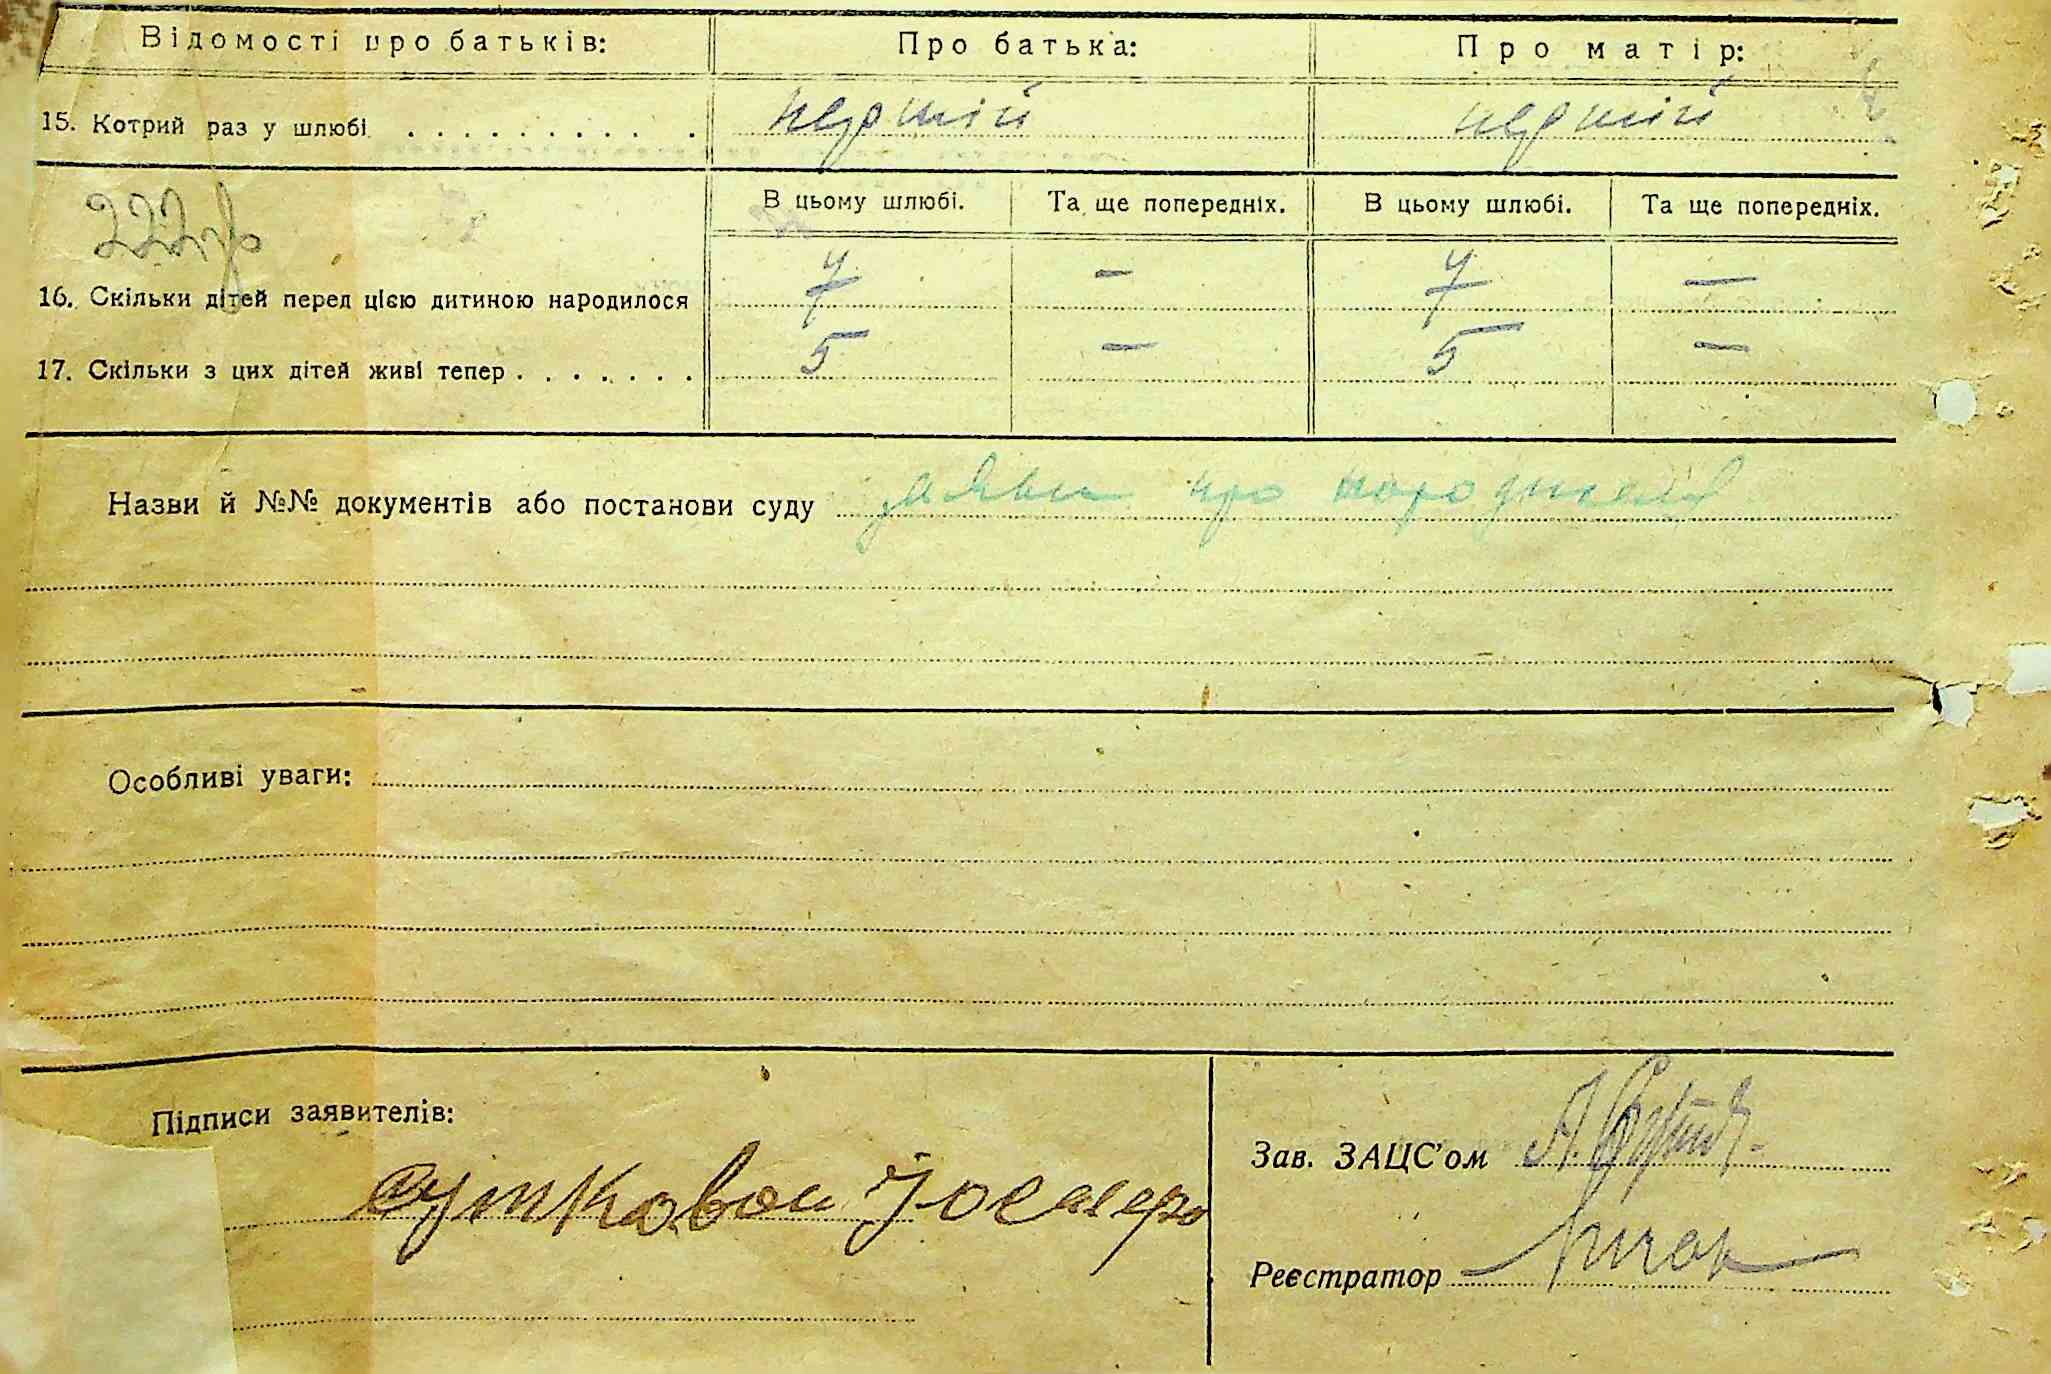 Відомості про батьків: Про батька: Про матір:
15. Котрий раз у шлюбі . . . . . . . . . . перший перший
В цьому шлюбі. Та ще попередніх. В цьому шлюбі. Та ще попередніх.
16. Скільки дітей перед цією дитиною народилося 7 — 7 —
17. Скільки з цих дітей живі тепер . . . . . . . 5 — 5 —
Назви й №№ документів або постанови суду про народження
Особливі уваги:
Підписи заявителів:
Зав. ЗАЦС'ом
Реєстратор